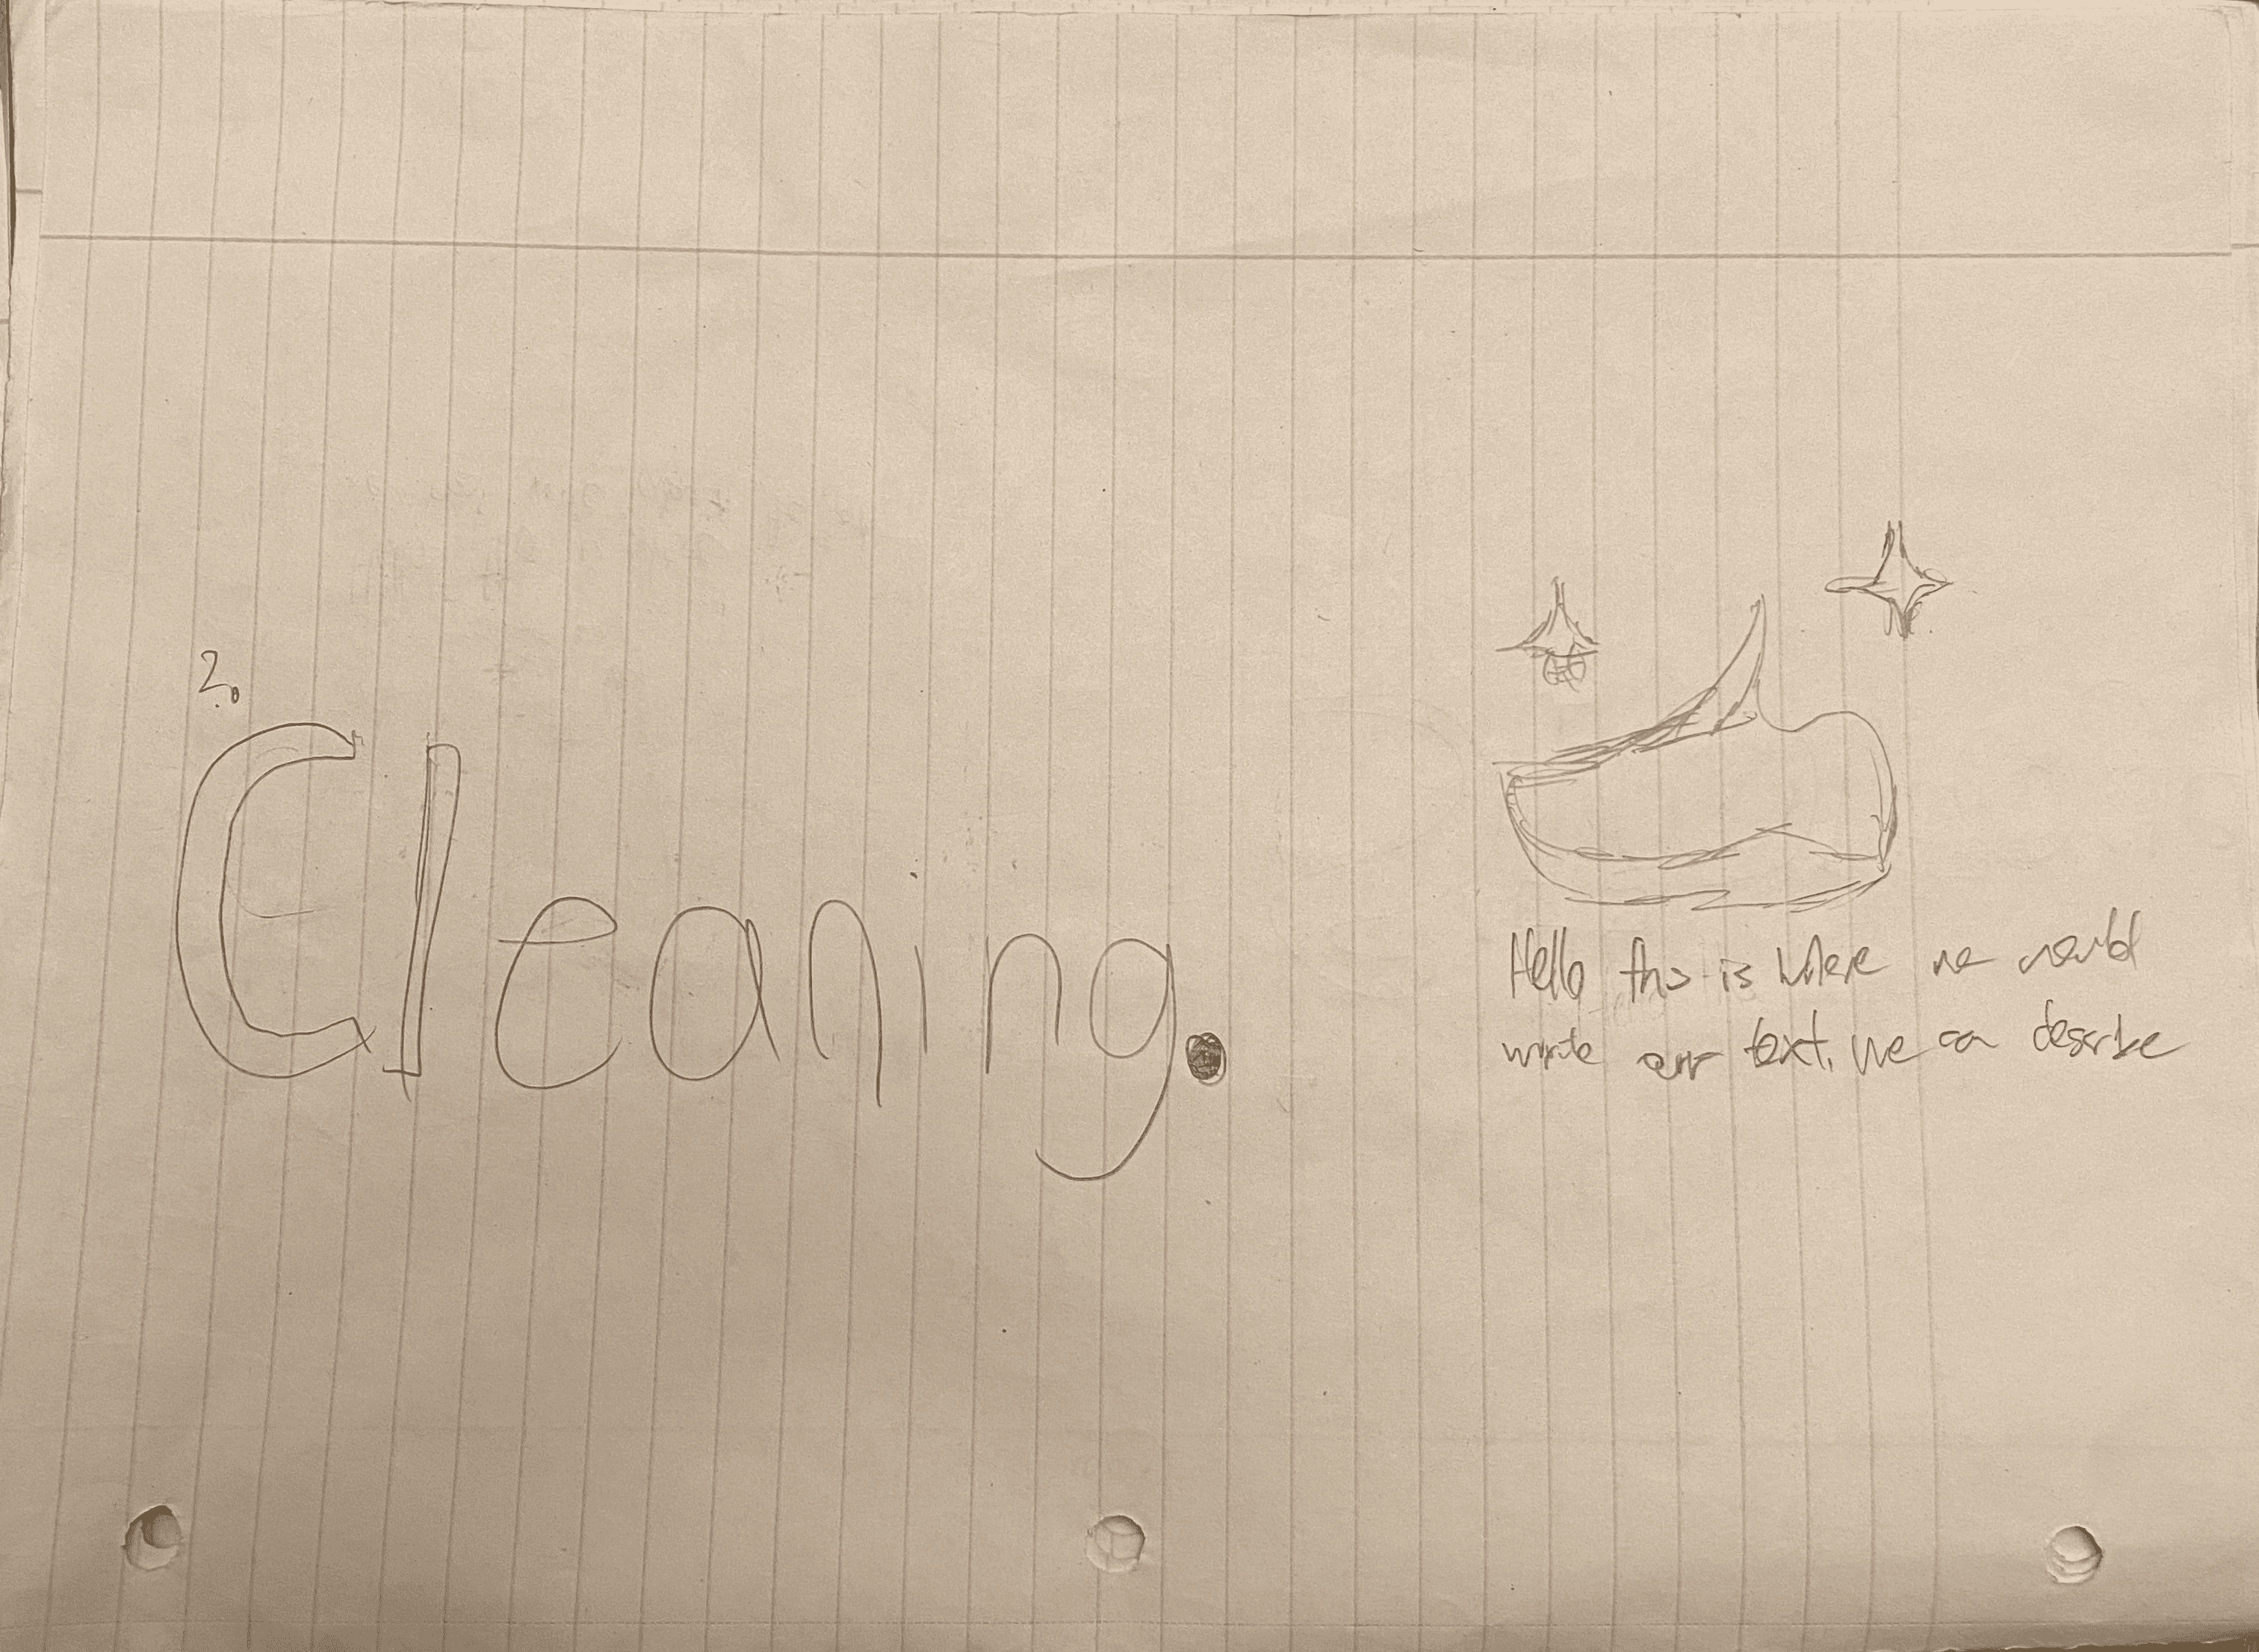 2.
Cleaning.
Hello this is where we would
write our text. We can describe